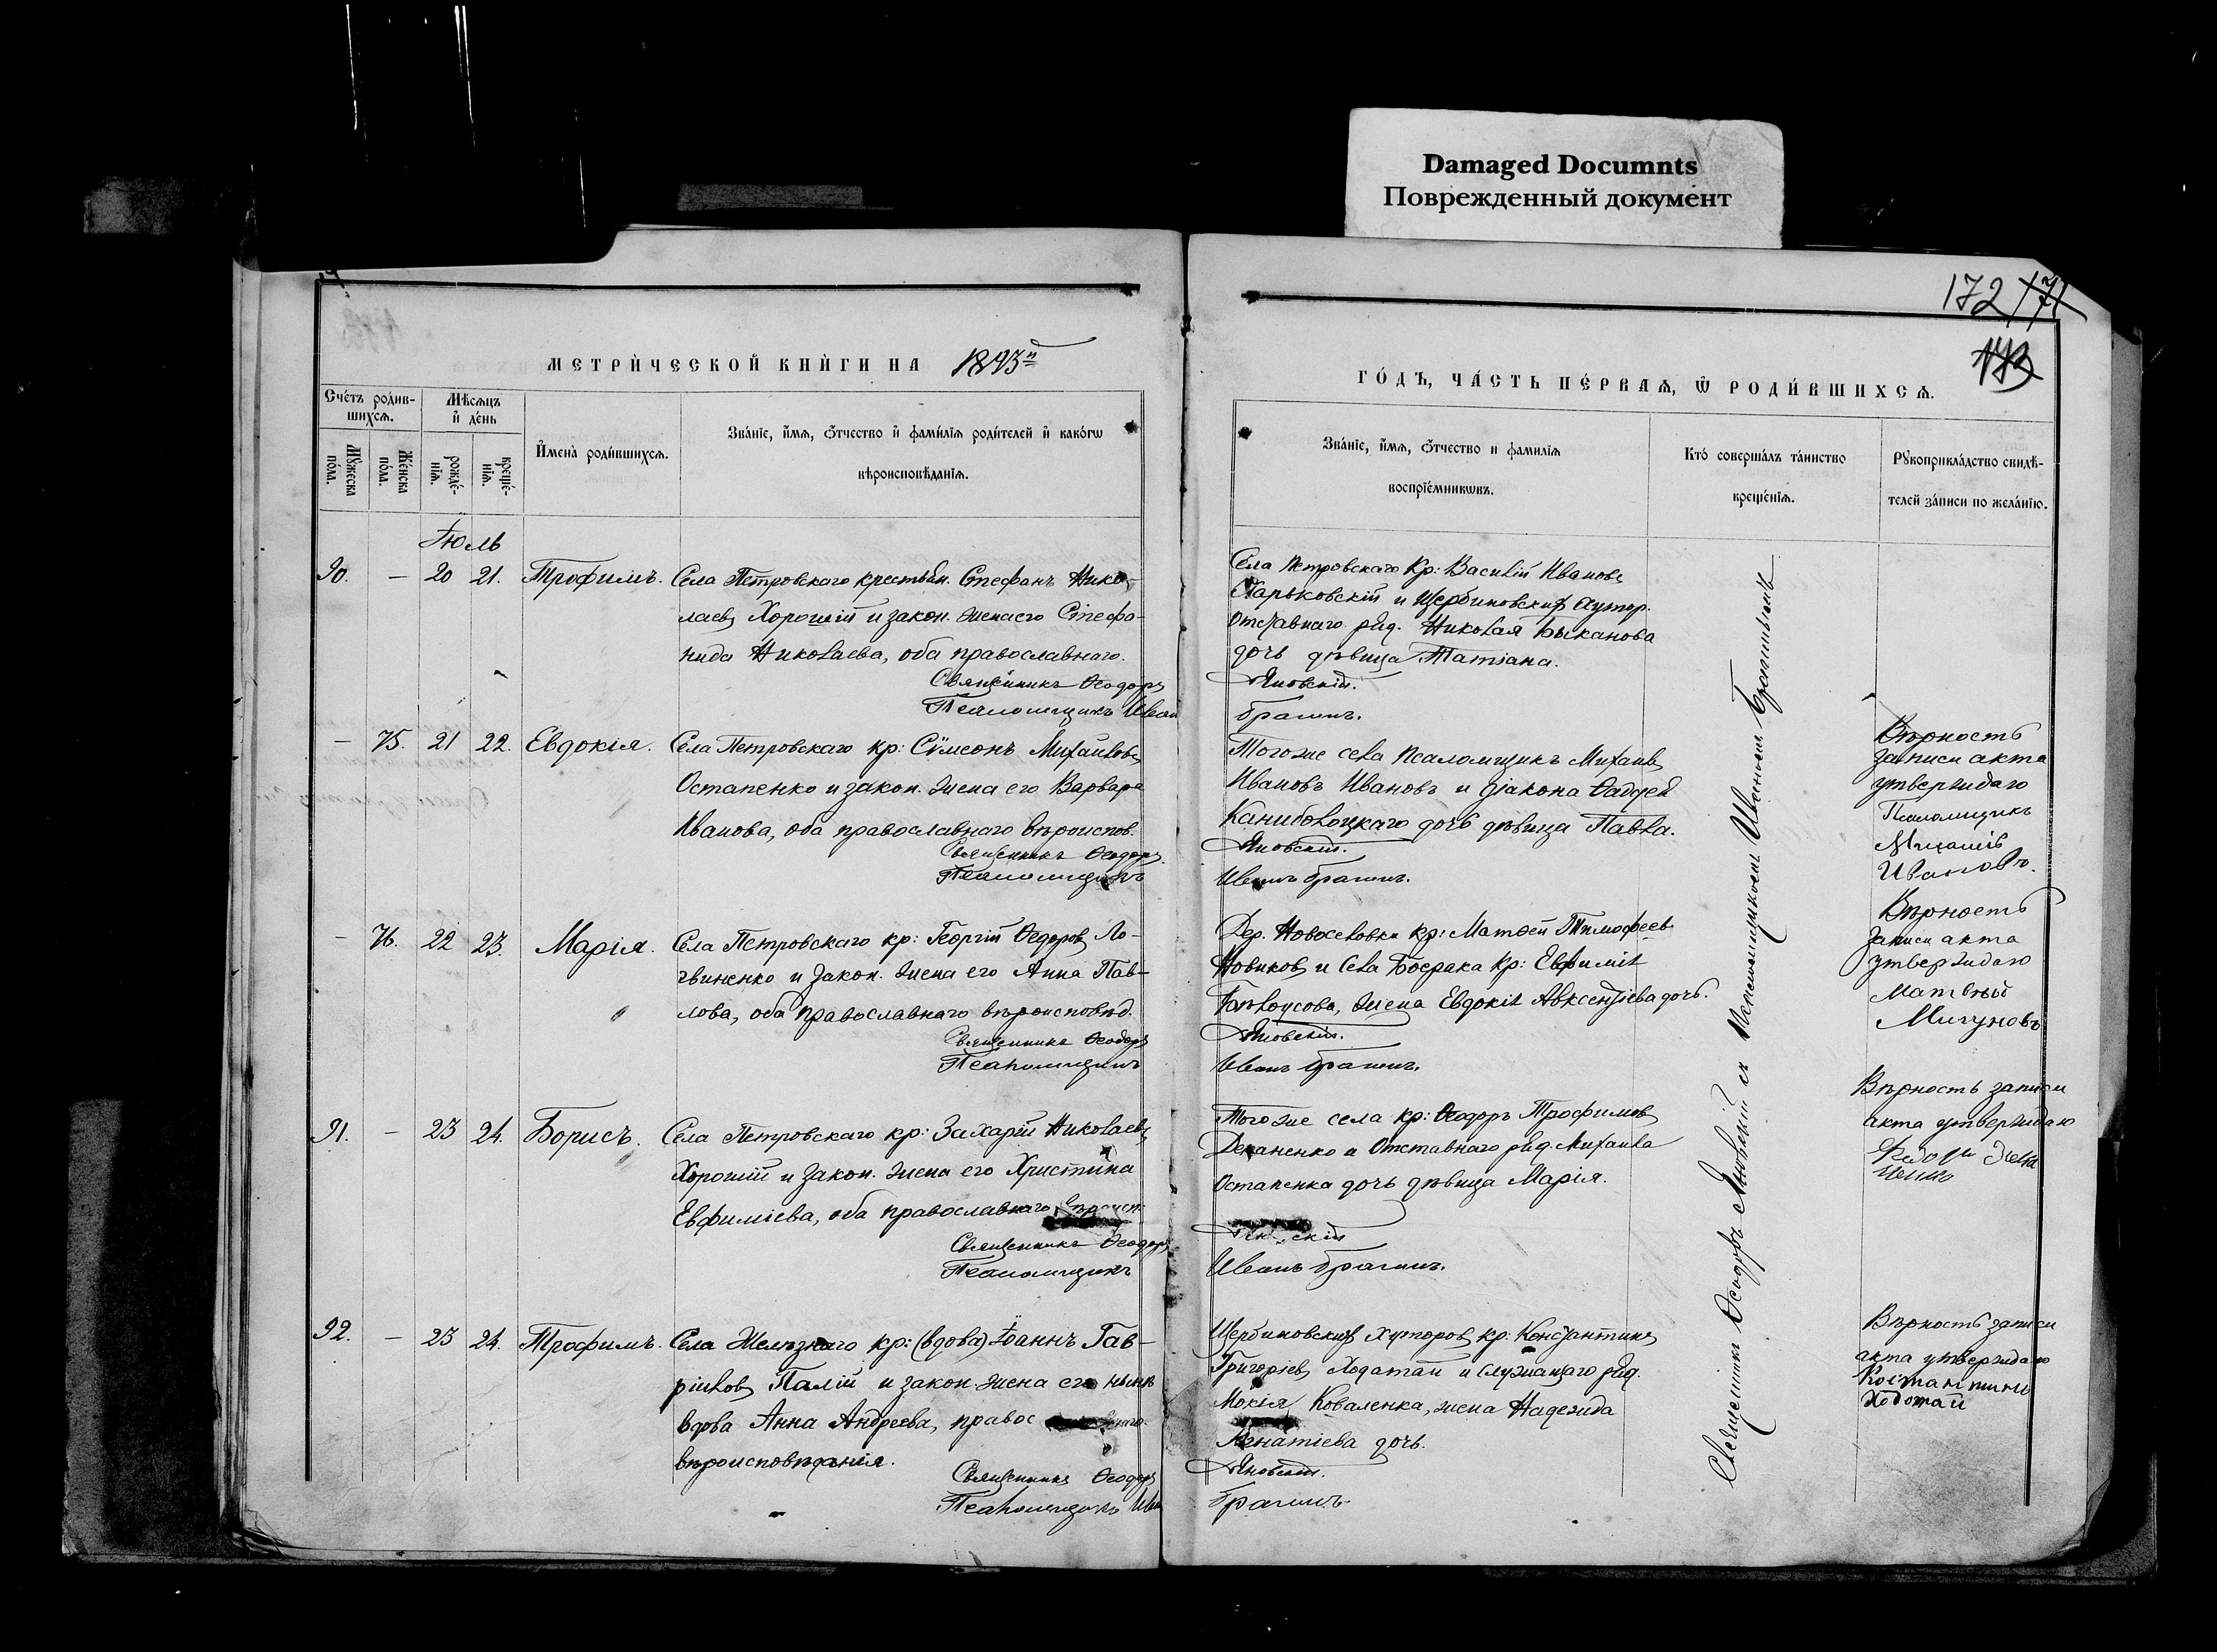 Damaged Documnts
Поврежденный документ
172 171
173
МЕТРИ́ЧЕСКОЙ КНИ́ГИ НА 1893й
ГО́ДЪ, ЧА́СТЬ ПЕ́РВАѦ, Ѽ РОДИ́ВШИХСѦ.
Сче́тъ роди́в-
шихсѧ.
Мѣ́сѧцъ
и҆ де́нь
Мꙋ́жеска
по́ла.
Же́нска
по́ла.
рожде́-
нїѧ.
креще́-
нїѧ.
И҆мена̀ роди́вшихсѧ.
Зва́нїе, и҆́мѧ, ѻ҆́тчество и҆ фами́лїѧ роди́телей и҆ како́гѡ
вѣроисповѣ́данїѧ.
Зва́нїе, и҆́мѧ, ѻ҆́тчество и фамилїѧ
воспрїе́мникѡвъ.
Кто́ соверша́лъ та́инство
креще́нїѧ.
Рꙋкоприкла́дство свидѣ́-
телей за́писи по жела́нїю.
Іюль
90. — 20 21. Трофимъ. Села Петровскаго крестьян. Стефанъ Нико-
лаевъ Хорошій и закон. жена его Стефа-
нида Николаева, оба православнаго.
Священникъ Ѳеодоръ
Псаломщикъ Иван
Села Петровскаго Кр: Василій Ивановъ
Харьковскій и Щербиновских хутор.
Отставнаго ряд. Николая Быканова
дочь дѣвица Татіана.
Яновскій.
Брагинъ.
— 75. 21 22. Евдокія. Села Петровскаго кр: Сѵмеонъ Михайловъ
Остапенко и закон. жена его Варвара
Иванова, оба православнаго вѣроиспов.
Священникъ Ѳеодоръ
Псаломщикъ
Того же села Псаломщикъ Михаилъ
Ивановъ Ивановъ и діакона Ѳаддей
Канибологцкаго дочь дѣвица Павла.
Яновскій.
Иванъ Брагинъ.
Вѣрность
записи акта
утверждаю
Псаломщикъ
Михаилъ
Ивановъ.
— 76. 22 23. Марія. Села Петровскаго кр: Георгій Ѳедоровъ Ло-
гвиненко и закон. жена его Анна Пав-
лова, оба православнаго вѣроисповѣд.
Священникъ Ѳеодоръ
Псаломщикъ
Дер. Новоселовки кр: Матѳей Тимофеев
Новиковъ и Села Боерака кр: Евфимія
Бѣлоусова, жена Евдокія Авксентіева дочь.
Яновскій.
Иванъ Брагинъ.
Вѣрность
записи акта
утверждаю
Матвѣй
91. — 23 24. Борисъ. Села Петровскаго кр: Захарій Николаевъ
Хорошій и закон. жена его Христина
Евфиміева, оба православнаго вѣроисп.
Священникъ Ѳеодоръ
Псаломщикъ
Того же села кр: Ѳеодоръ Трофимовъ
Деканенко и Отставнаго ряд. Михаила
Остапенка дочь дѣвица Марія.
Иванъ Брагинъ.
Вѣрность записи
акта утверждаю
92. — 23 24. Трофимъ. Села Желѣзнаго кр: (вдова) Іоаннъ Гав-
ріиловъ Палій и закон. жена его нынѣ
вдова Анна Андреева, правос
вѣроисповѣданія.
Священникъ Ѳеодоръ
Псаломщикъ Иван
Щербиновскихъ Хуторовъ кр: Константинъ
Григоріевъ Ходатай и служащаго ряд.
Мокія Коваленка, жена Надежда
Игнатіева дочь.
Яновскій.
Брагинъ
Вѣрность записи
акта утверждаю
Костантинъ
Ходотай
Священникъ Ѳеодоръ Яновскій съ Псаломщикомъ Иваномъ Брагинымъ